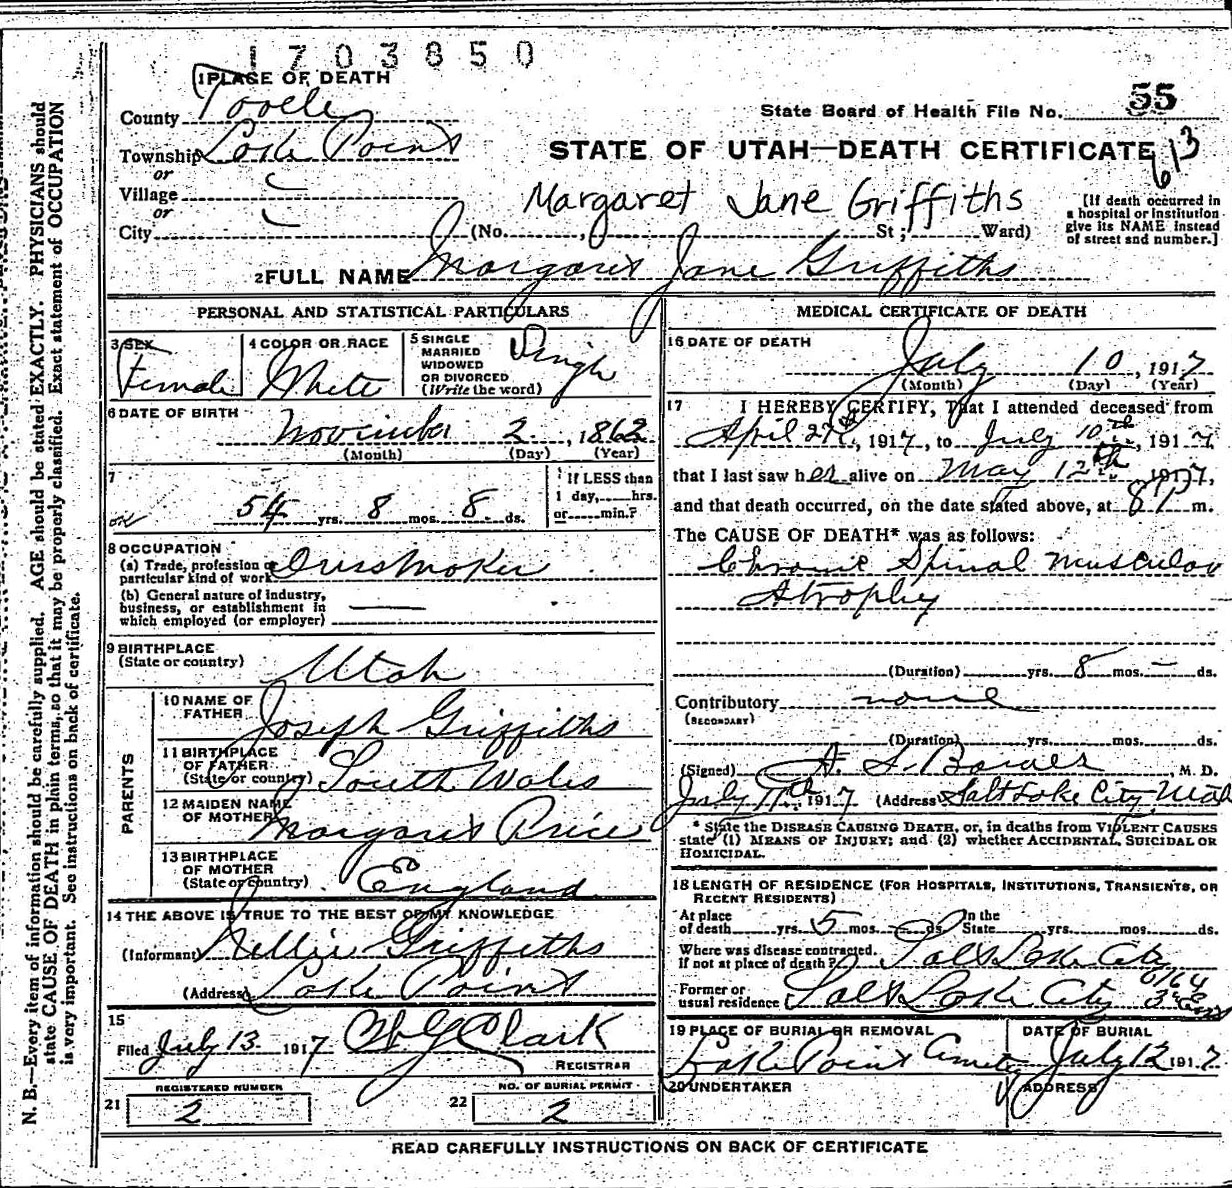 1703850
1 PLACE OF DEATH
County Tooele
State Board of Health File No. 55
Township Lake Point
STATE OF UTAH—DEATH CERTIFICATE
613
or
Village
or
Margaret Jane Griffiths
[If death occurred in
a hospital or institution
give its NAME instead
of street and number.]
City (No. , St; Ward)
2 FULL NAME Margaret Jane Griffiths
PERSONAL AND STATISTICAL PARTICULARS
3 SEX
Female
4 COLOR OR RACE
White
5 SINGLE
MARRIED
WIDOWED
OR DIVORCED
(Write the word)
Single
6 DATE OF BIRTH
November 2, 1862
(Month) (Day) (Year)
7
54 yrs. 8 mos. 8 ds.
If LESS than
1 day, hrs.
or min.?
8 OCCUPATION
(a) Trade, profession or
particular kind of work Dressmaker
(b) General nature of industry,
business, or establishment in
which employed (or employer)
9 BIRTHPLACE
(State or country)
Utah
PARENTS
10 NAME OF
FATHER
Joseph Griffiths
11 BIRTHPLACE
OF FATHER
(State or country) South Wales
12 MAIDEN NAME
OF MOTHER
Margaret Price
13 BIRTHPLACE
OF MOTHER
(State or country)
England
14 THE ABOVE IS TRUE TO THE BEST OF MY KNOWLEDGE
(Informant) Nellie Griffiths
(Address) Lake Point
15
Filed July 13 1917 Clark
REGISTRAR
REGISTERED NUMBER
21 2
NO. OF BURIAL PERMIT
22 2
MEDICAL CERTIFICATE OF DEATH
16 DATE OF DEATH
July 10, 1917
(Month) (Day) (Year)
17 I HEREBY CERTIFY, That I attended deceased from
April 27th, 1917, to July 10th, 1917,
that I last saw her alive on May 12th 1917,
and that death occurred, on the date stated above, at 8 P m.
The CAUSE OF DEATH* was as follows:
Chronic Spinal Muscular
Atrophy
(Duration) yrs. 8 mos. — ds.
Contributory none
(SECONDARY)
(Duration) yrs. mos. ds.
(Signed) , M. D.
July 11th 1917 (Address) Salt Lake City Utah
* State the DISEASE CAUSING DEATH, or, in deaths from VIOLENT CAUSES
state (1) MEANS OF INJURY; and (2) whether ACCIDENTAL, SUICIDAL OR
HOMICIDAL.
18 LENGTH OF RESIDENCE (FOR HOSPITALS, INSTITUTIONS, TRANSIENTS, OR
RECENT RESIDENTS)
At place
of death yrs. 5 mos. — ds.
In the
State yrs. mos. ds.
Where was disease contracted.
If not at place of death? Salt Lake City
Former or
usual residence Salt Lake City
19 PLACE OF BURIAL OR REMOVAL
Lake Point
DATE OF BURIAL
July 12 1917
20 UNDERTAKER
ADDRESS
READ CAREFULLY INSTRUCTIONS ON BACK OF CERTIFICATE
N. B.—Every item of information should be carefully supplied. AGE should be stated EXACTLY. PHYSICIANS should
state CAUSE OF DEATH in plain terms, so that it may be properly classified. Exact statement of OCCUPATION
is very important. See instructions on back of certificate.